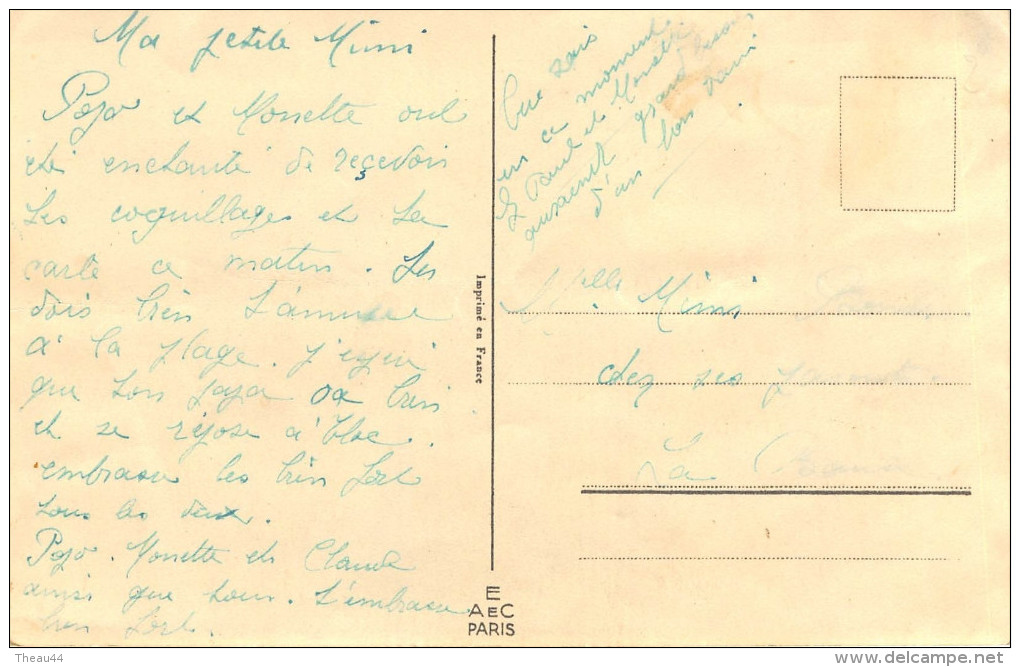 Ma petite Mimi
Popo et Monette ont
été enchanté de reçevoir
les coquillages et ta
carte ce matin. Tu
dois bien t'amuser
à la plage. J'espère
que ton papa va bien
et se repose à bloc.
embrasse les bien fort
tous les deux.
Popo. Monette et Claude
ainsi que tous. t'embrasse
bien fort.
Imprimé en France
E
A E C
PARIS
Que sais
en ce moment
Paul et
auraient grand besoin
d'un bon
Melle Mimi
chez ses parents
La
Theau44
www.delcampe.net